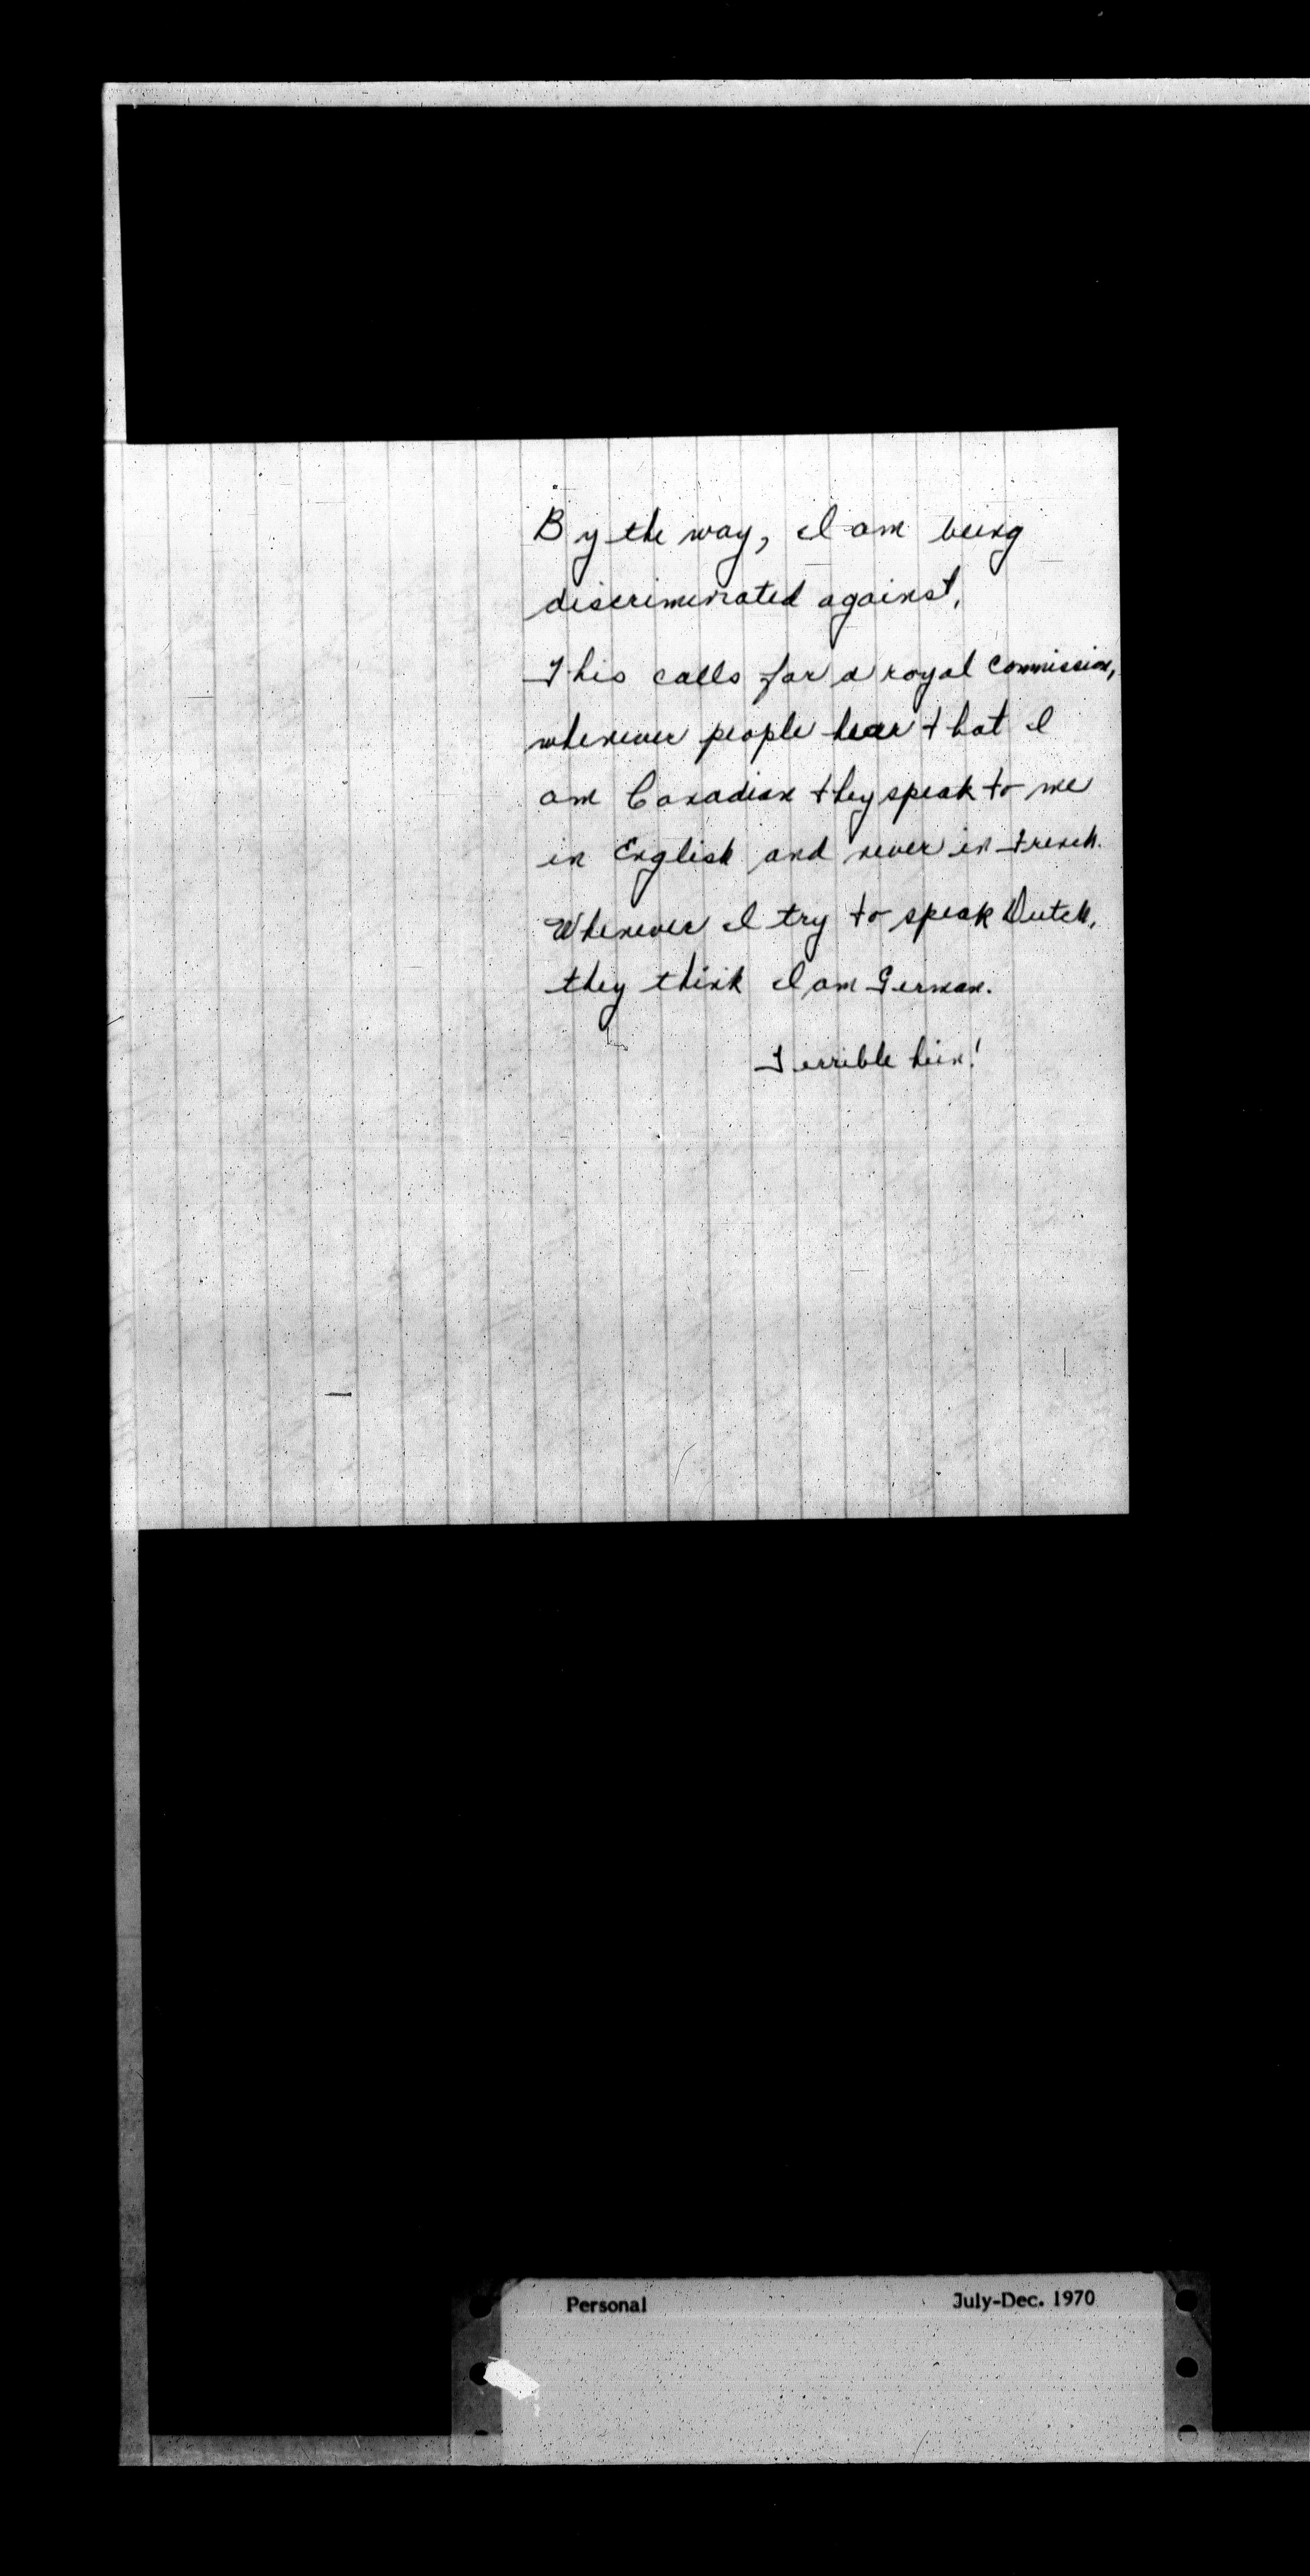 By the way, I am being
discriminated against.
This calls for a royal commission,
whenever people hear that I
am Canadian they speak to me
in English and never in French.
Whenever I try to speak Dutch,
they think I am German.
Terrible hein!
Personal July-Dec. 1970